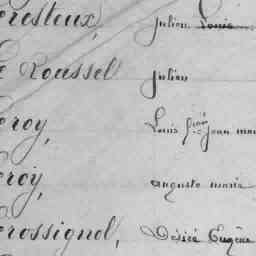 resteux, Julien Louis
e Roussel Julien
eroy, Louis Jean mar
eroy, auguste marie
erossignol, Désiré Eugène